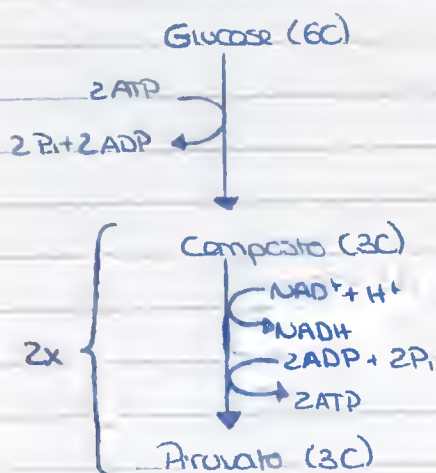 Glucose (6C)
2ATP
2Pi+2ADP
Composto (3C)
NAD⁺ + H⁺
NADH
2x
2ADP + 2Pi
2ATP
Piruvato (3C)